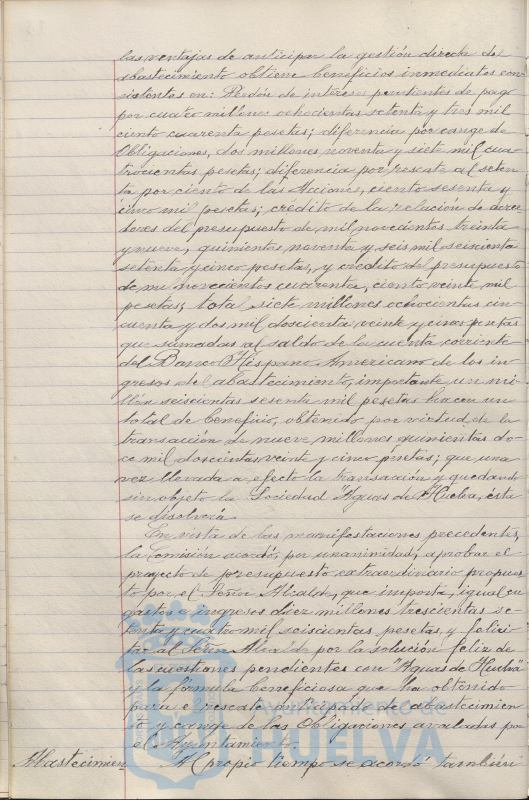 las ventajas de anticipar la gestión directa del
abastecimiento obtiene beneficios inmediatos con
sistentes en: Perdón de intereses pendientes de pago
por cuatro millones ochocientas setenta y tres mil
ciento cuarenta pesetas; diferencia por cange de
Obligaciones, dos millones noventa y siete mil cua
trocientas pesetas; diferencia por rescate al seten
ta por ciento de las Acciones, ciento sesenta y
cinco mil pesetas; crédito de la relación de acree
dores del presupuesto de mil novecientos treinta
y nueve, quinientas noventa y seis mil seiscienta
setenta y cinco pesetas, y crédito del presupuesto
de mil novecientos cuarenta, ciento veinte mil
pesetas; total siete millones ochocientas cin
cuenta y dos mil doscienta veinte y cinco pesetas
que sumadas al saldo de la cuenta corriente
del Banco Hispano Americano de los in
gresos del abastecimiento, importante un mi
llón seiscientas sesenta mil pesetas hacen un
total de beneficio, obtenido por virtud de la
transacción de nueve millones quinientas do
ce mil doscientas veinte y cinco pesetas; que una
vez llevada a efecto la transacción y quedando
sin objeto la Sociedad "Aguas de Huelva", ésta
se disolverá.
En vista de las manifestaciones precedentes,
la Comisión acordó, por unanimidad, aprobar el
proyecto de presupuesto extraordinario propues
to por el Señor Alcalde, que importa, igual en
gastos e ingresos diez millones trescientas se
tenta y cuatro mil seiscientas pesetas, y felici
tar al Señor Alcalde por la solución feliz de
las cuestiones pendientes con "Aguas de Huelva"
y la fórmula beneficiosa que ha obtenido
para el rescate anticipado de abastecimien
to y cange de las Obligaciones avaladas por
el Ayuntamiento.
Abastecimien Al propio tiempo se acordó también
HUELVA